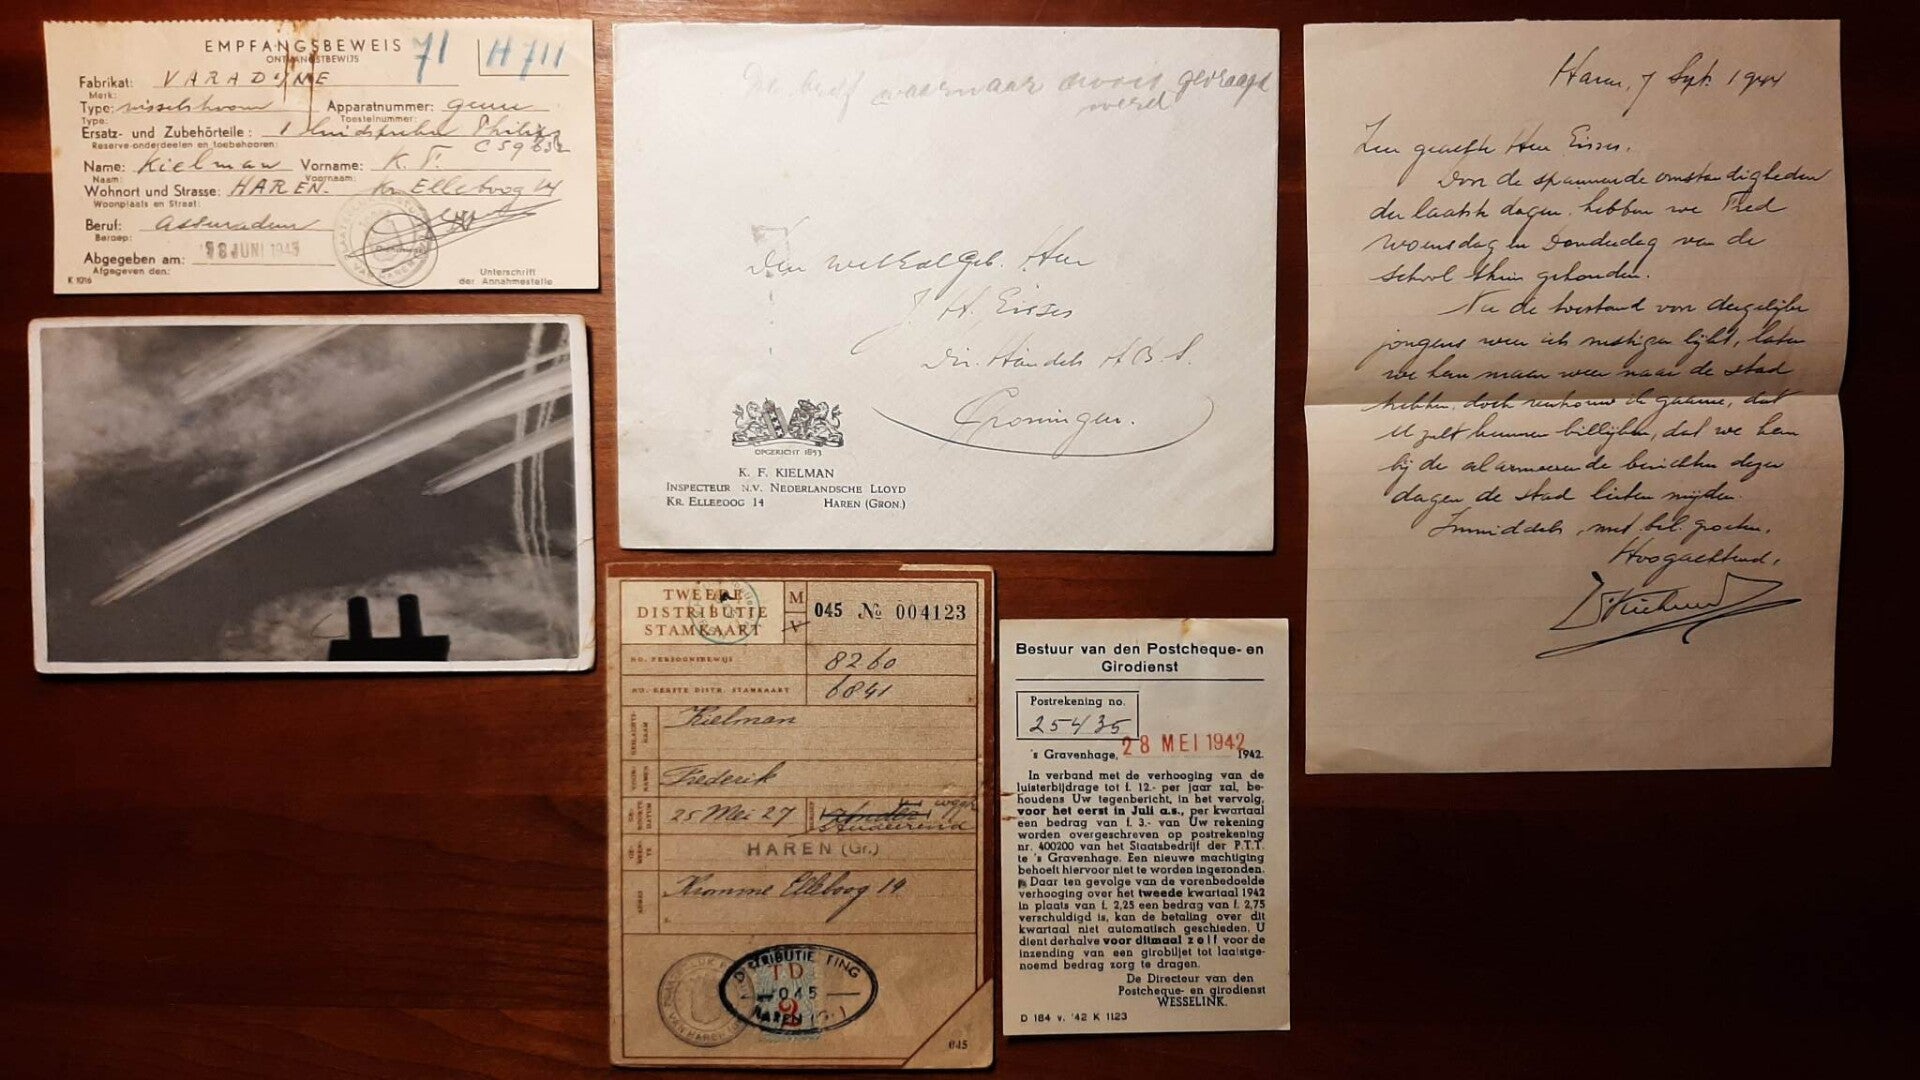 EMPFANGSBEWEIS 71 H 711
ONTVANGSTBEWIJS
Fabrikat: VARADYNE
Merk:
Type: wisselstroom Apparatnummer: geene
Type: Toestelnummer:
Ersatz- und Zubehörteile: 1 luidspreker Philips
Reserve-onderdeelen en toebehooren: C59632
Name: Kielman Vorname: K. F.
Naam: Voornaam:
Wohnort und Strasse: HAREN. Kr. Elleboog 14
Woonplaats en Straat:
Beruf: assuradeur
Beroep:
Abgegeben am: 18 JUNI 1943
Afgegeven den:
K 1016
Unterschrift
der Annahmestelle
De brief waarnaar nooit gevraagd
werd
Den WelEdelGeb. Heer
J. H. Eisses
Dir. Handels H.B.S.
Groningen.
OPGERICHT 1853
K. F. KIELMAN
INSPECTEUR N.V. NEDERLANDSCHE LLOYD
KR. ELLEBOOG 14 HAREN (GRON.)
Haren, 7 Sept. 1944
Zeer geachte Heer Eisses.
Door de spannende omstandigheden
der laatste dagen, hebben we Fred
Woensdag en Donderdag van de
school thuis gehouden.
Nu de toestand voor dergelijke
jongens weer iets rustiger lijkt, laten
we hem maar weer naar de stad
hebben, doch vertrouw ik gaarne, dat
U zult kunnen billijken, dat we hem
bij de alarmeerende berichten dezer
dagen de stad lieten mijden.
Inmiddels, met bel. groeten,
Hoogachtend,
KFKielman
TWEEDE
DISTRIBUTIE
STAMKAART
M
V
045 № 004123
NO. PERSOONSBEWIJS 8260
NO. EERSTE DISTR. STAMKAART 6841
GESLACHTSNAAM Kielman
VOORNAMEN Frederik
GEBOORTEDATUM 25 Mei 27
Studeerend
GEMEENTE HAREN (Gr.)
ADRES Kromme Elleboog 14
DISTRIBUTIE KRING
TD
045
2
HAREN (Gr.)
045
Bestuur van den Postcheque- en
Girodienst
Postrekening no.
25435
's Gravenhage, 28 MEI 1942 1942.
In verband met de verhooging van de
luisterbijdrage tot f. 12.- per jaar zal, be-
houdens Uw tegenbericht, in het vervolg,
voor het eerst in Juli a.s., per kwartaal
een bedrag van f. 3.- van Uw rekening
worden overgeschreven op postrekening
nr. 400200 van het Staatsbedrijf der P.T.T.
te 's Gravenhage. Een nieuwe machtiging
behoeft hiervoor niet te worden ingezonden.
Daar ten gevolge van de vorenbedoelde
verhooging over het tweede kwartaal 1942
in plaats van f. 2,25 een bedrag van f. 2,75
verschuldigd is, kan de betaling over dit
kwartaal niet automatisch geschieden. U
dient derhalve voor ditmaal zelf voor de
inzending van een girobiljet tot laatstge-
noemd bedrag zorg te dragen.
De Directeur van den
Postcheque- en girodienst
WESSELINK.
D 184 v. '42 K 1123